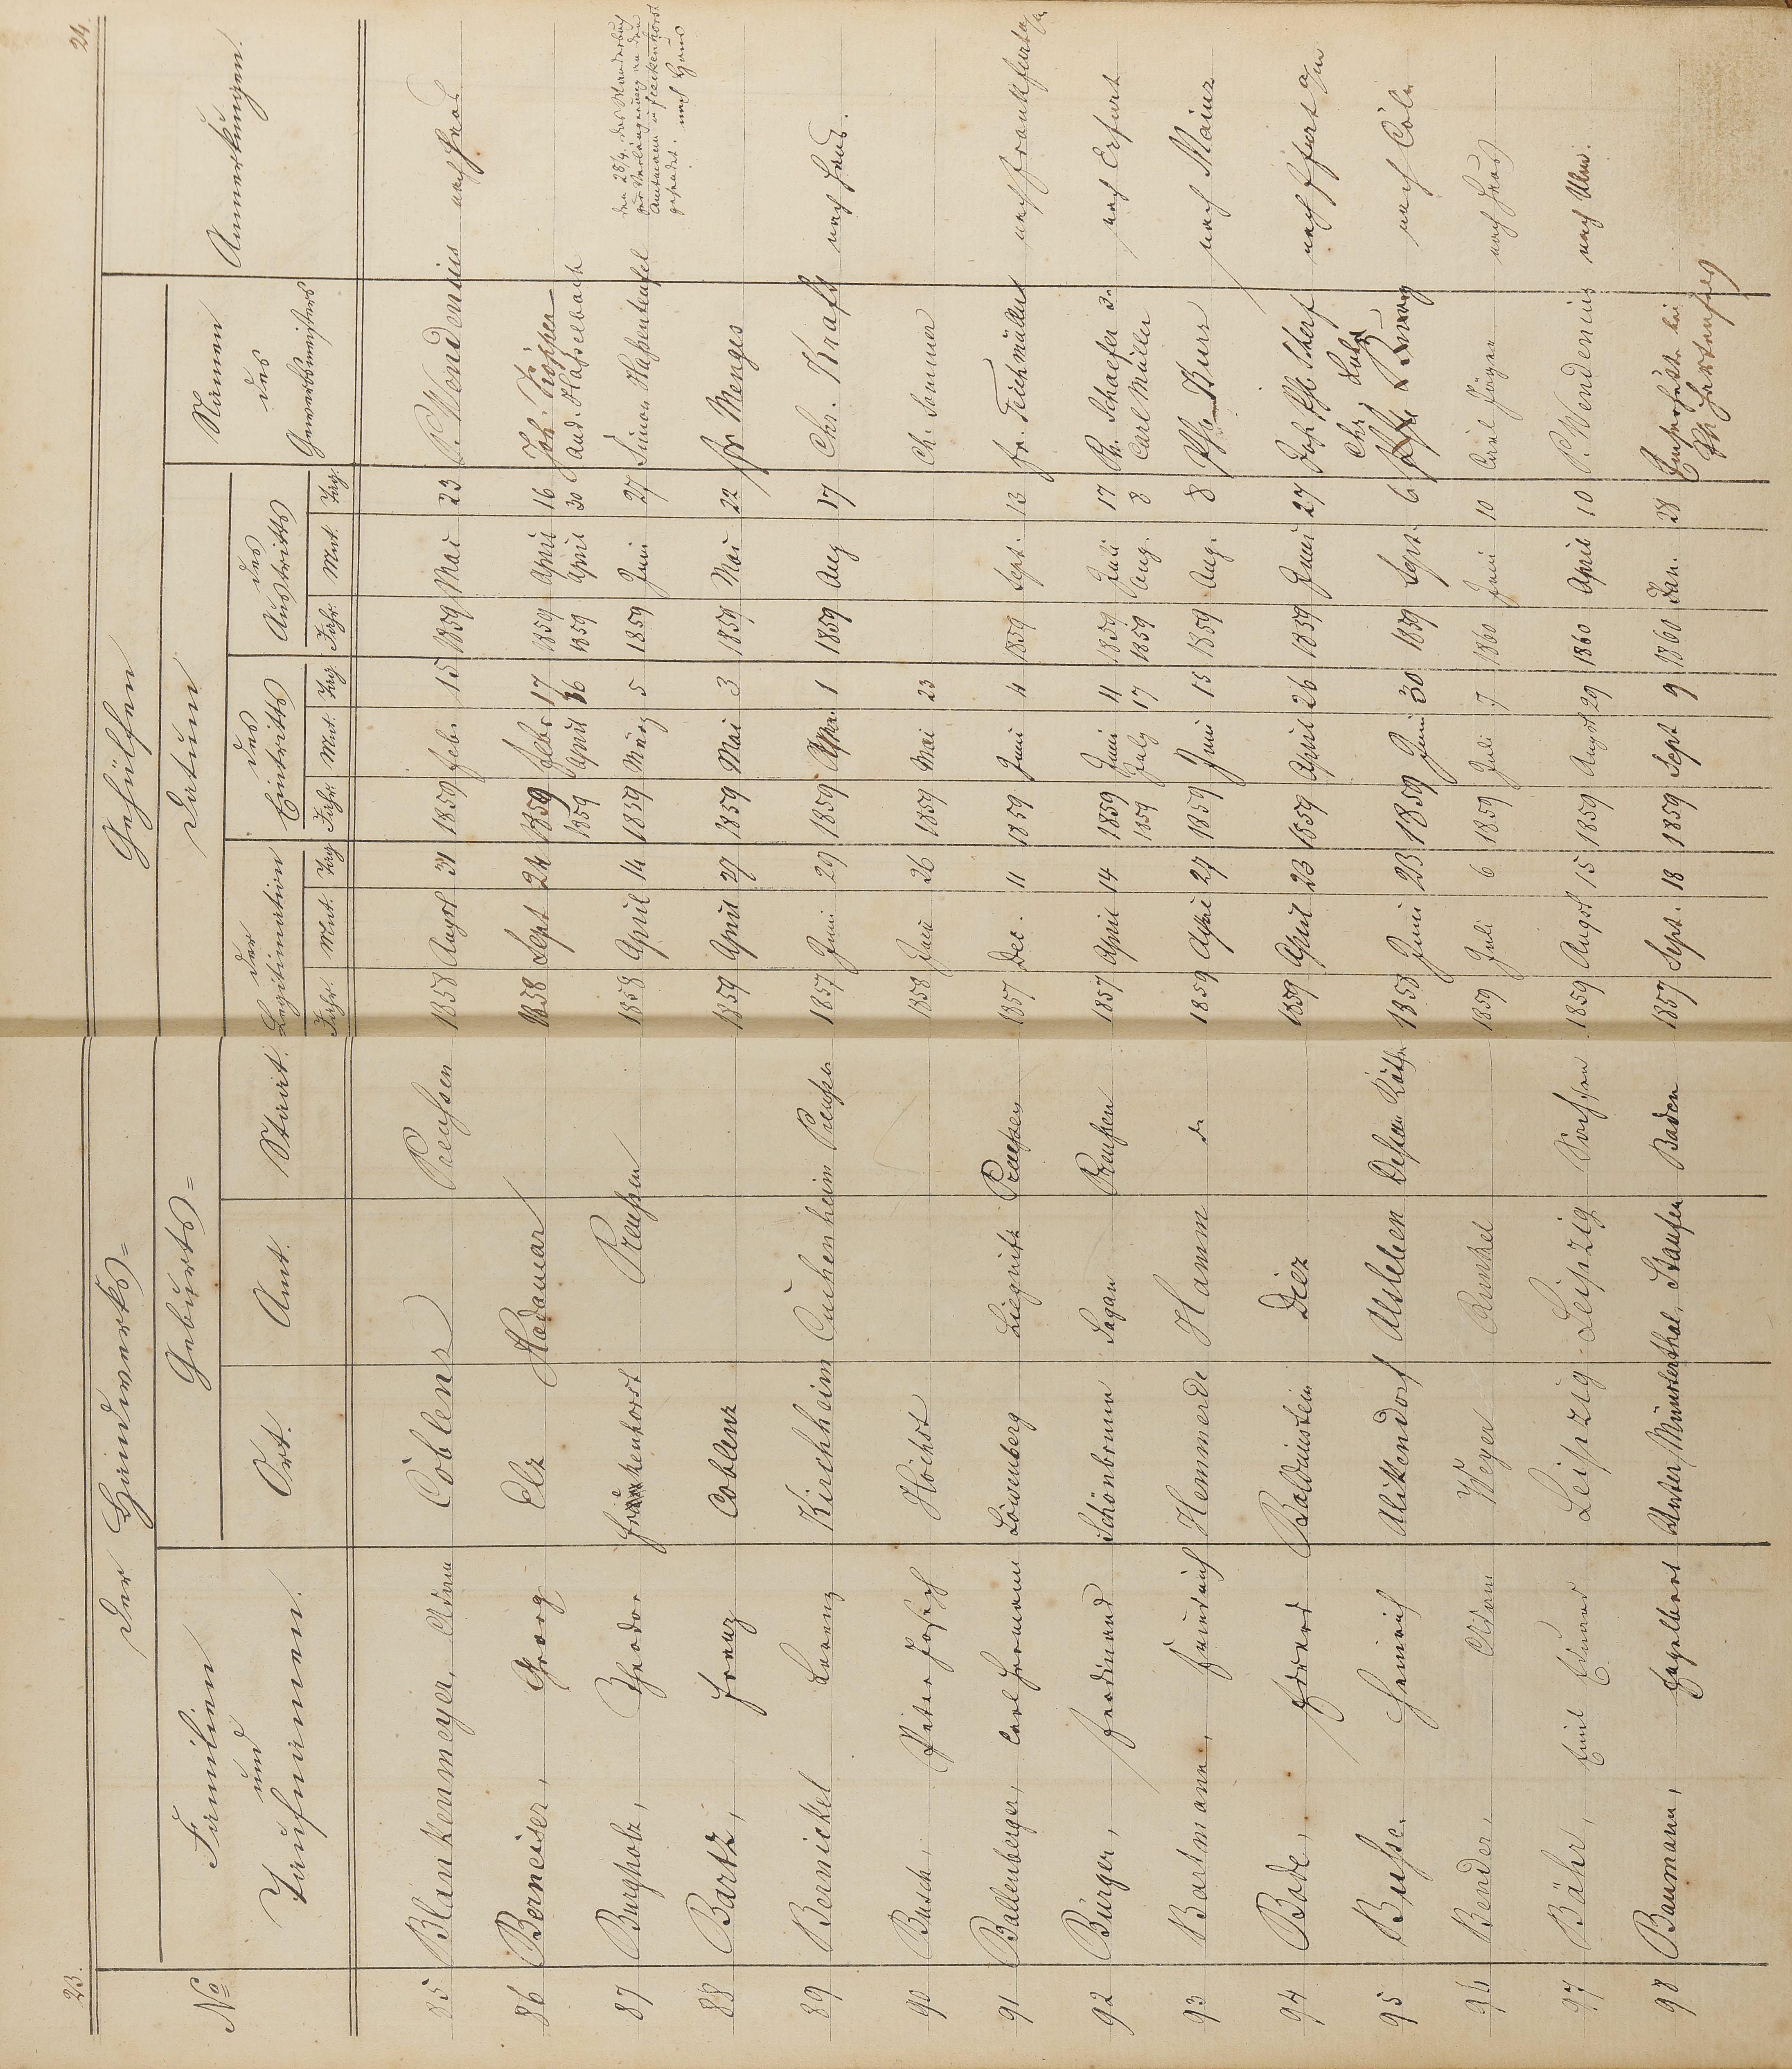 23.
24.
Der Handwerks=
Gehülfen
No
Familien
und
Taufnamen.
Geburts=
Ort.
Amt.
Staat.
Datum
der
Legitimation
Jahr. Mnt. Tag
des
Eintritts
Jahr. Mnt. Tag.
des
Austritts
Jahr. Mnt. Tag.
Namen
des
Gewerbsmeisters
Anmerkungen.
85 Blankenmeyer, Adam Coblenz Preussen 1858 August 31 1859 Feb. 15 1859 Mai 23 P. Wendenius nach Haus
86 Berneiser, Georg Elz Hadamar 1858 Sept 24 1859 Febr. 17 1859 April 16 Joh.
1859 April 16 1859 April 30 And. Hasselbach
87 Burgholz, Theodor Preußen 1858 April 14 1859 März 5 1859 Juni 27 Simon Hasenteufel
den 28/4. das Wanderbuch
zur Verlängerung an den
Amtmann in Freckenhorst
gesendet. nach Haus
88 Bartz, Franz Coblenz 1859 April 27 1859 Mai 3 1859 Mai 22 Fr Menges
89 Bernickel Lorenz Kirchheim Cuchenheim Preußen 1857 Juni 29 1859 Apr. 1 1859 Aug 17 Chr. Kraft nach Haus.
90 Busch, Peter Josef Höchst 1858 Juni 26 1859 Mai 23 Ch. Sommer
91 Ballenberger, Carl Hermann Löwenberg Liegnitz Preußen 1857 Dec. 11 1859 Juni 4 1859 Sept. 13 Fr. Teichmüller nach Frankfurt a/m
92 Bürger, Ferdinand Schönbrunn Sagan Preußen 1857 April 14 1859 Juni 11 1859 Juli 17 Ph. Schaefer nach Erfurt
1859 July 17 1859 Aug. 8 Carl Müller
93 Bartmann, Heinrich Hemmerde Hamm do 1859 April 27 1859 Juni 15 1859 Aug. 8 Phil. Burr nach Mainz
94 Bode, Eduard Balduinstein Diez 1859 April 23 1859 April 26 1859 Juni 27 Joh. Ph. Scherf nach Ffurt a/m
95 Busse. Heinrich Alikendorf Alsleben 1858 Juni 23 1859 Juni 30 1859 Sept. 6 Chr. nach Cöln
96 Bender, Adam Weyer Runkel 1859 Juli 6 1859 Juli 7 1860 Juni 10 Carl Jäger nach Haus
97 Bähr, Emil Eduard Leipzig Leipzig Sachsen 1859 August 15 1859 August 29 1860 April 10 P. Wendenius nach Ulm.
98 Baumann, Engelbert Unter/Münsterthal, Staufen Baden 1857 Sept. 18 1859 Sept 9 1860 Jan. 28